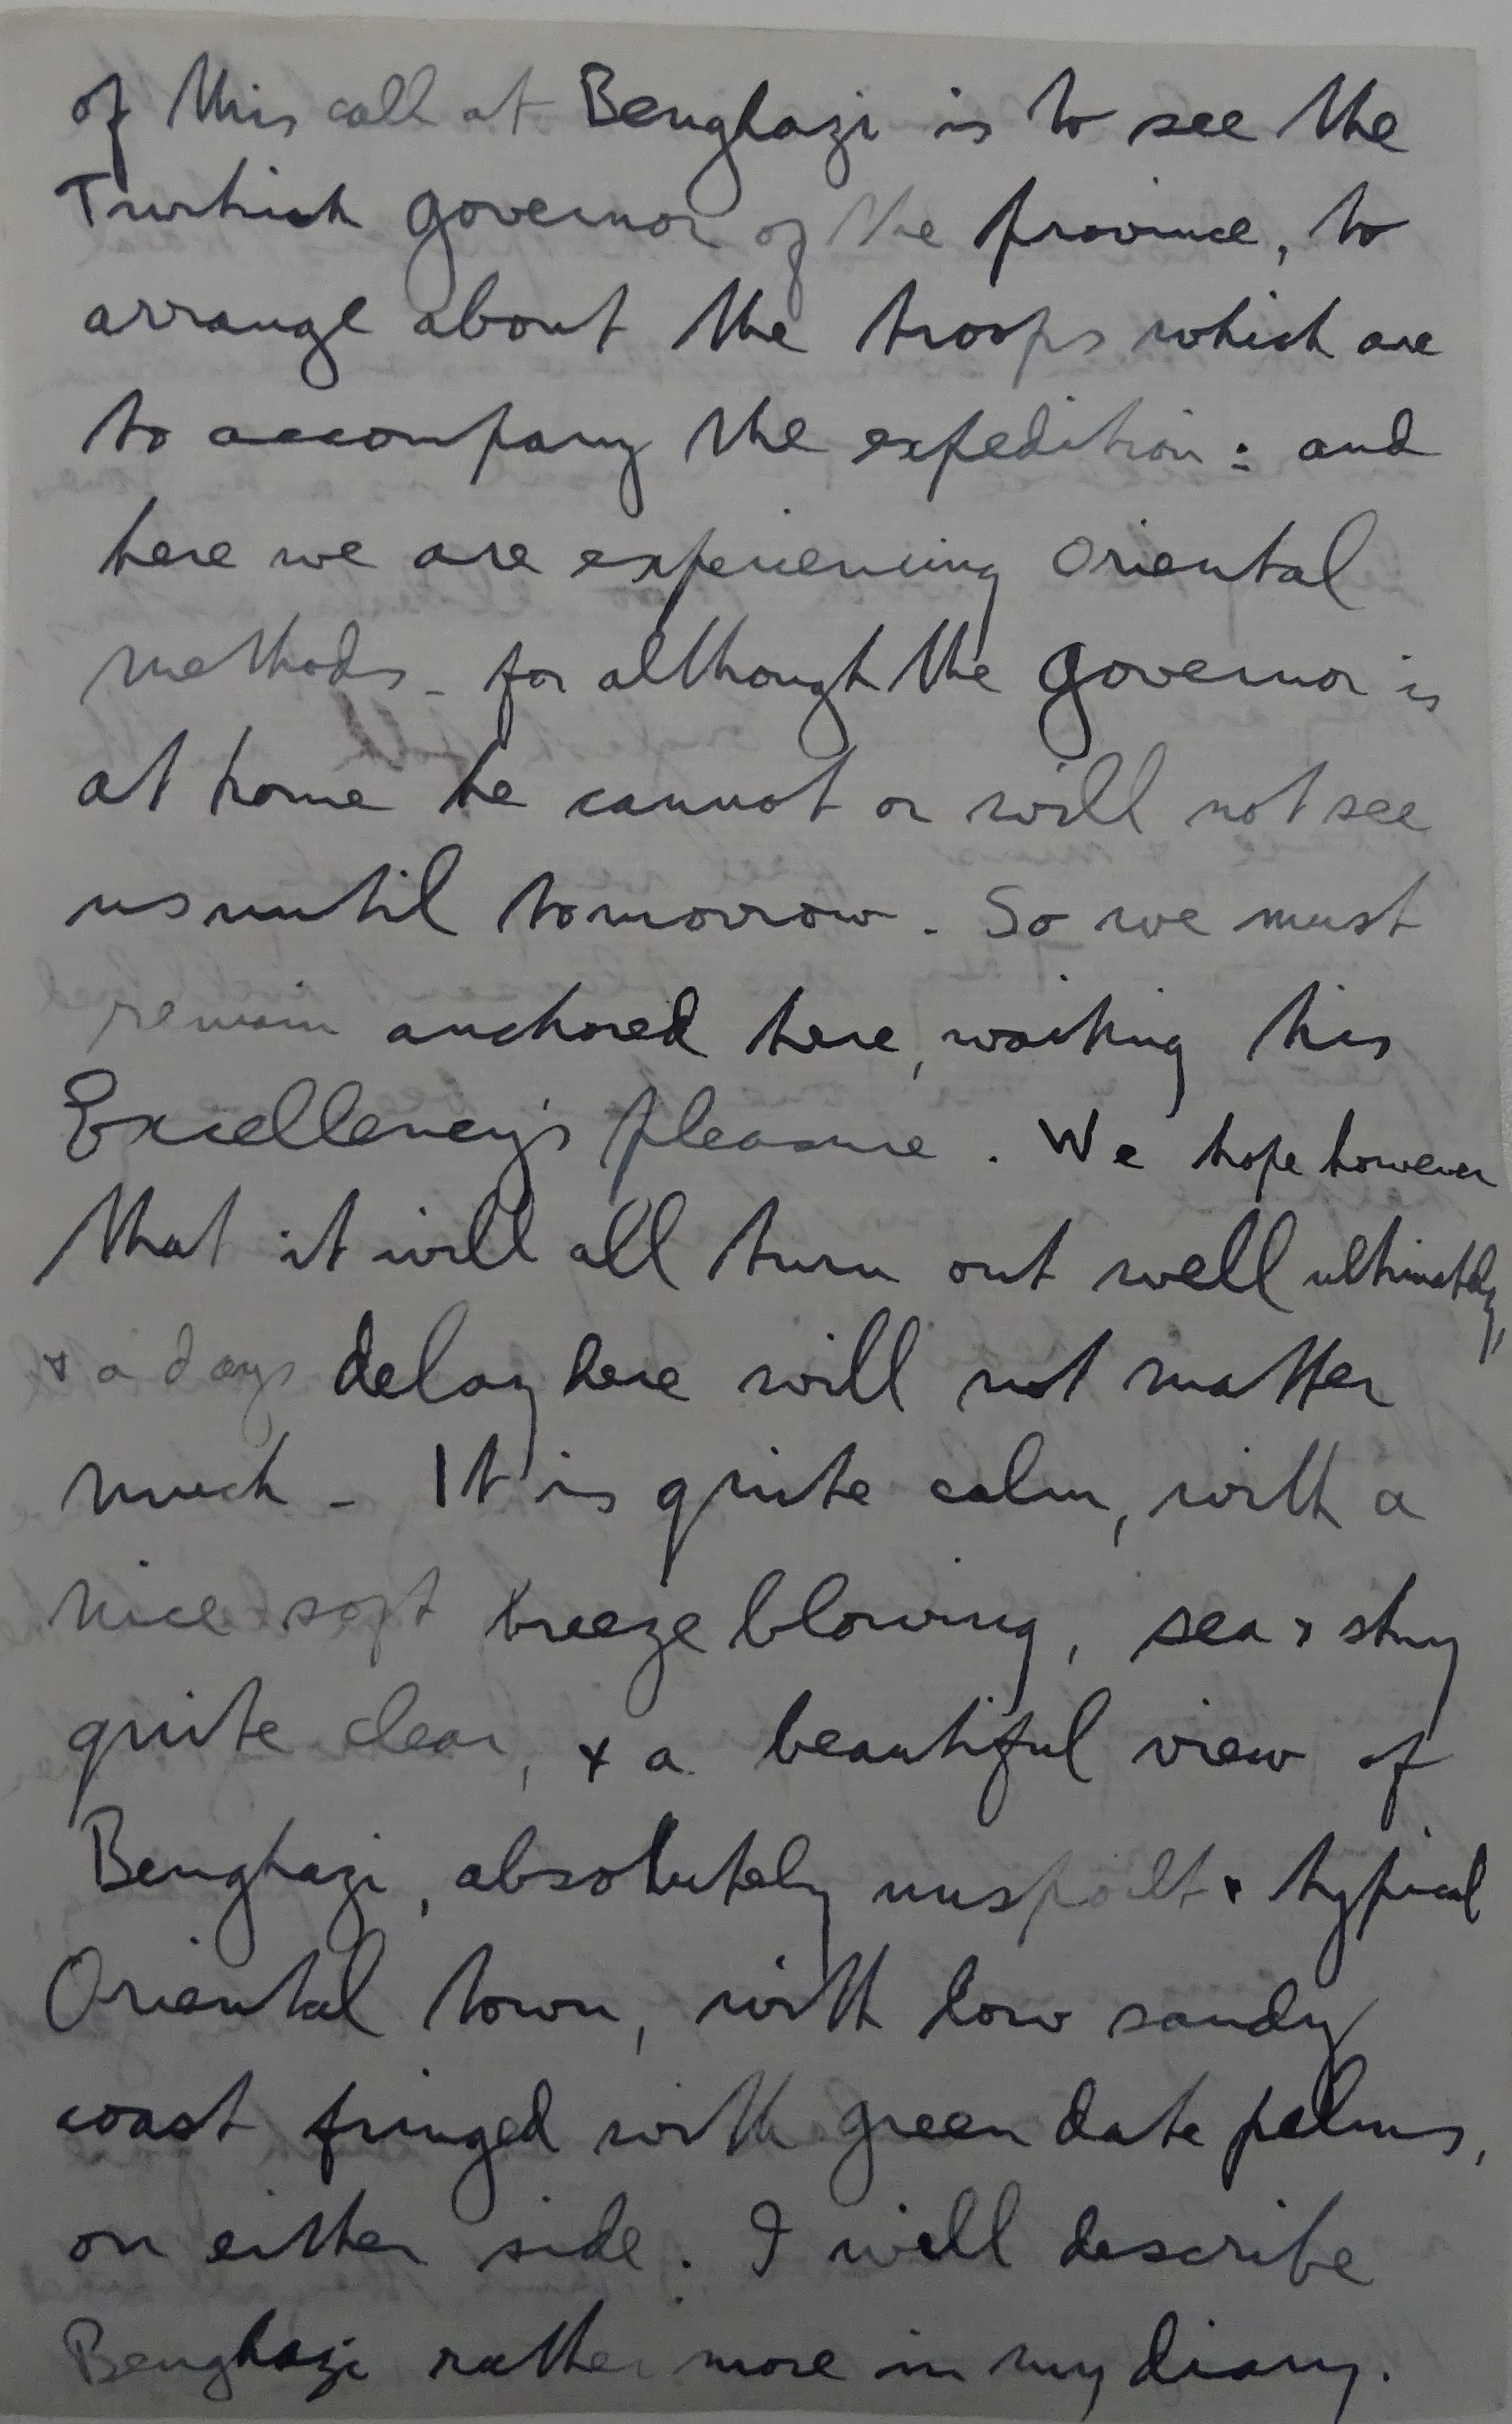 of this call at Benghazi is to see the
Turkish governor of the province, to
arrange about the troops which are
to accompany the expedition : and
here we are experiencing Oriental
methods - for although the governor is
at home he cannot or will not see
us until tomorrow. So we must
remain anchored here, waiting his
Excellency's pleasure. We hope however
that it will all turn out well ultimately,
& a days delay here will not matter
much - It is quite calm, with a
nice soft breeze blowing, sea & sky
quite clear, & a beautiful view of
Benghazi, absolutely unspoilt & typical
Oriental town, with low sandy
coast fringed with green date palms,
on either side. I will describe
Benghazi rather more in my diary.